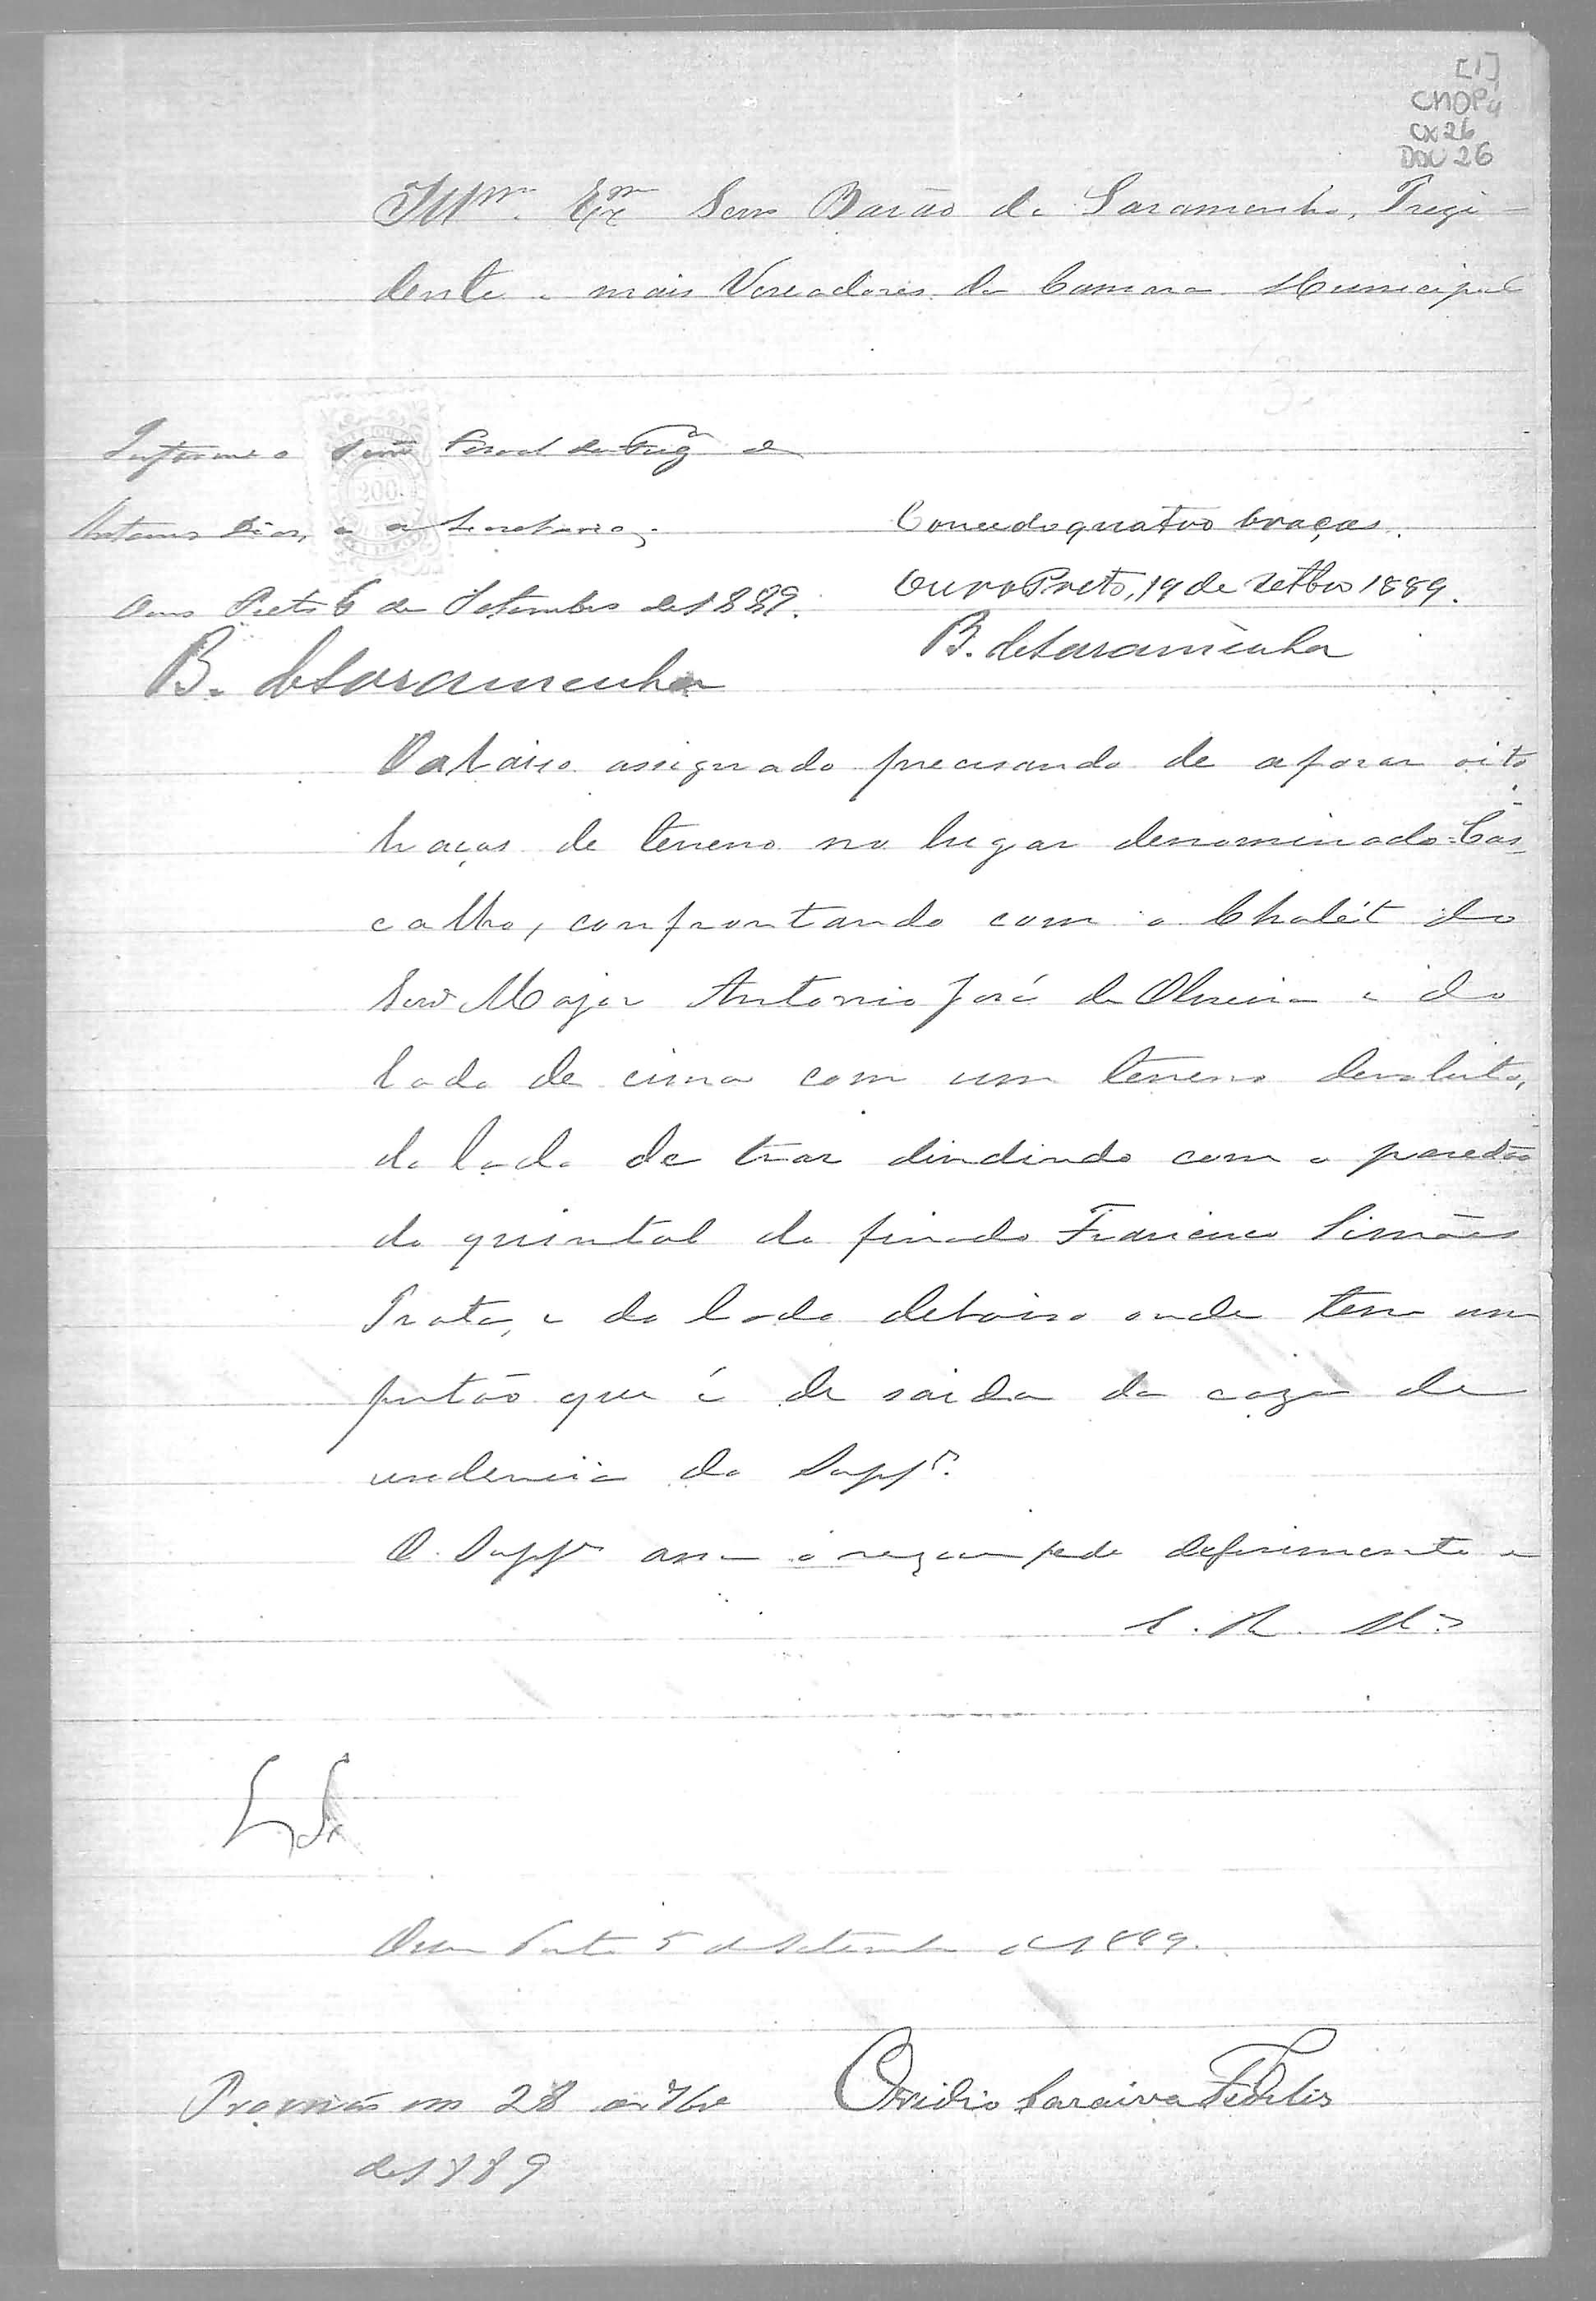 [1]
CMOP
CX 26
DOC 26
Illmo. Exmo Senr Barão de Saramenha, Prezi-
dente e mais Vereadores da Camara Municipal
Informe o Senr Fiscal da Frega de
Antonio Dias, e a Secretaria.
200
Ouro Preto 6 de Setembro de 1889.
B. de Saramenha
Concedo quatro braças.
Ouro Preto, 19 de Setbro 1889.
B. de Saramenha
O abaixo assignado precisando de aforar oito
braças de terreno no lugar denominado Cas-
calho, confrontando com o Chalét do
Senr Major Antonio José de Oliveira e do
lado de cima com um terreno devoluto,
do lado de traz dividindo com o paredão
do quintal do finado Francisco Simões
Prata, e do lado debaixo onde tem um
portão que é de saida da caza de
residencia do Suppe.
O Suppe pede deferimento e
E. R. Mce
Ouro Preto 5 de Setembro de 1889.
Ovidio Saraiva Fidelis
em 28 de 7bro
de 1889